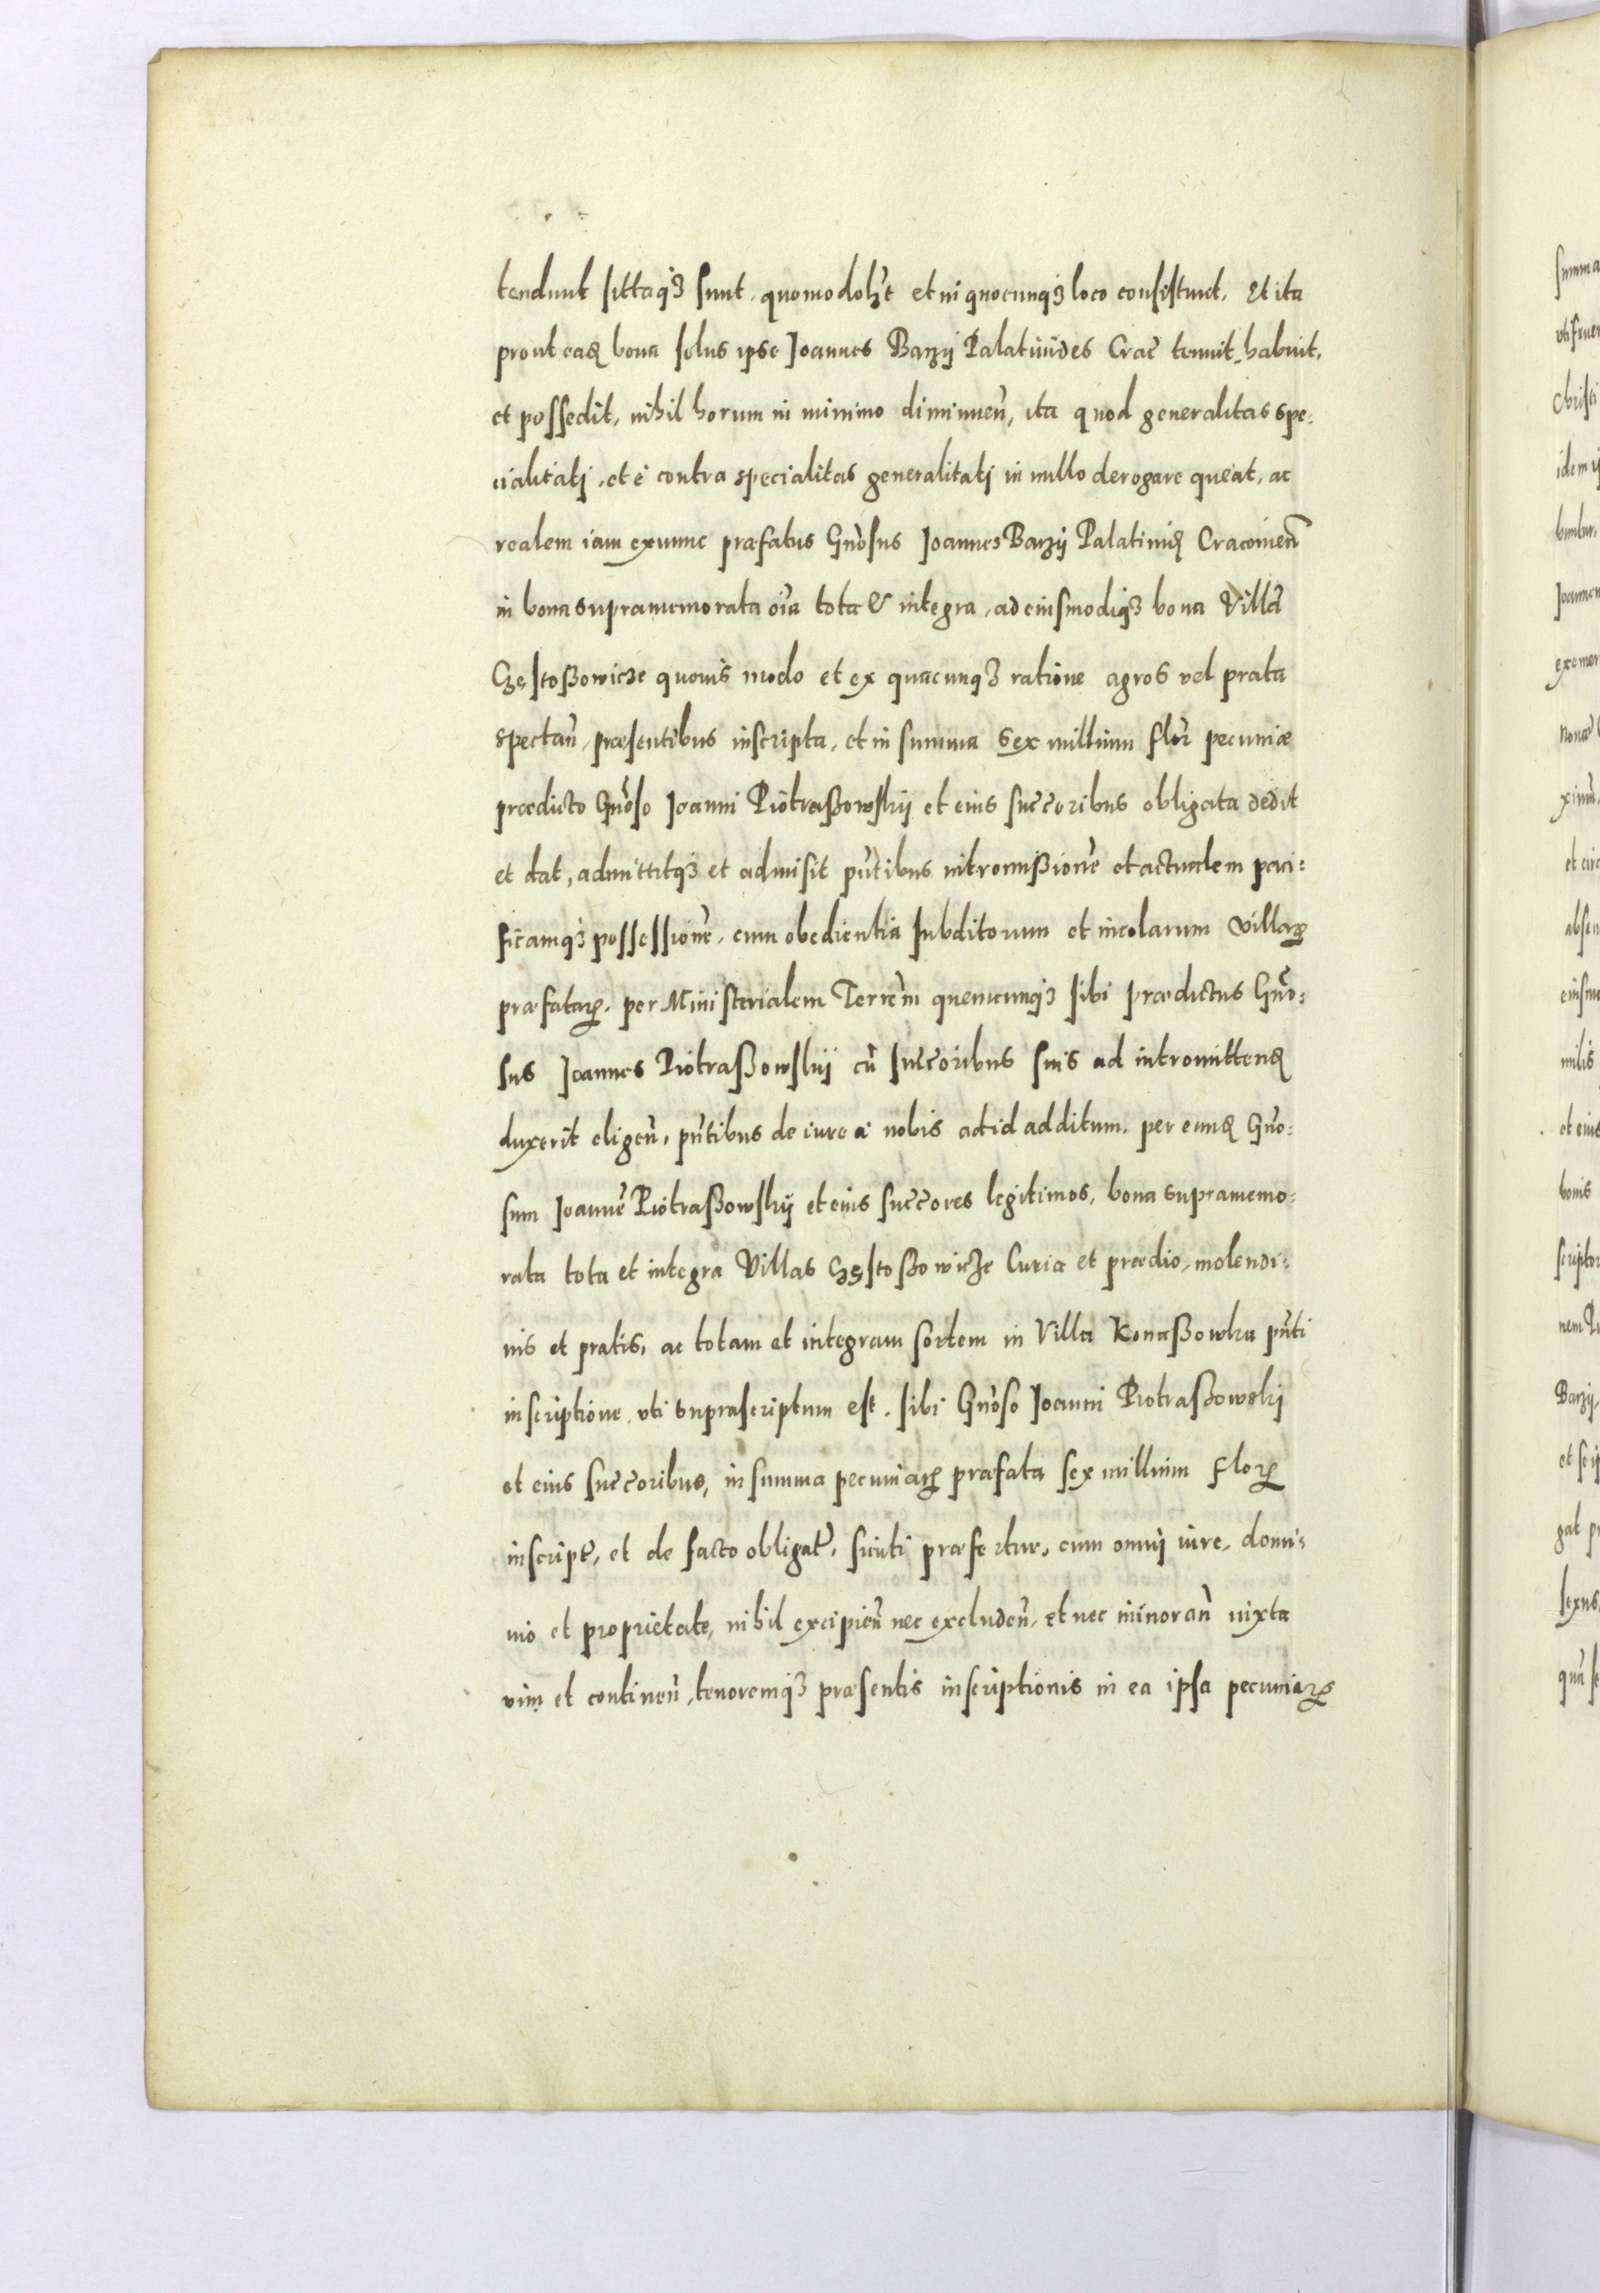 tendunt sittaq3 sunt, quomodolꝫt et in quocunq3 loco consistunt. Et ita
prout eaꝝ bona solus ipse Joannes Barzij Palatinides Crac̃ tenuit, habuit,
et possedit, nihil horum in minimo diminuen̄, ita quod generalitas spe:
cialitatj, et é contra specialitas generalitatj in nullo derogare queat, ac
realem iam exnunc præfatus Gñosus Joannes Barzij Palatinid Cracouien̄
in bona supramemorata oĩa tota & integra, ad eiusmodiq3 bona Villã
Częstoßowicze quouis modo et ex quacunq3 ratione agros vel prata
spectan̄, præsentibus inscripta, et in summa sex millium flor̃ pecuniæ
prædicto Gñoso Joanni Piotraßowskij et eius succ̃oribus obligata dedit
et dat, admittitq3 et admisit pñtibus intromißionẽ et actualem paci:
ficamq3 possessionẽ, cum obedientia subditorum et incolarum villaꝝ
præfataꝝ, per Ministerialem Terrẽm quemcunq3 sibi prædictus Gño:
sus Joannes Piotraßowskij cũ succ̃oribus suis ad intromitten̄
duxerit eligen̄, pñtibus de iure á nobis ad id additum, per eund Gño:
sum Joannẽ Piotraßowskij et eius succ̃ores legitimos, bona supramemo:
rata tota et integra Villas Częstoßowicze Curia et prædio, molendi:
nis et pratis, ac totam et integram sortem in Villa Konaßowka pñti
inscriptione vti suprascriptum est, sibi Gñoso Joanni Piotraßowskj
et eius succ̃oribus, in summa pecuniaꝝ præfata sex millium floꝝ
inscript̃, et de facto obligat̃, sicuti præfertur, cum omnj iure, domi:
nio et proprietate, nihil excipien̄ nec excluden̄, et nec minoran̄ iuxta
vim et continen̄, tenoremq3 præsentis inscriptionis in ea ipsa pecuniaꝝ